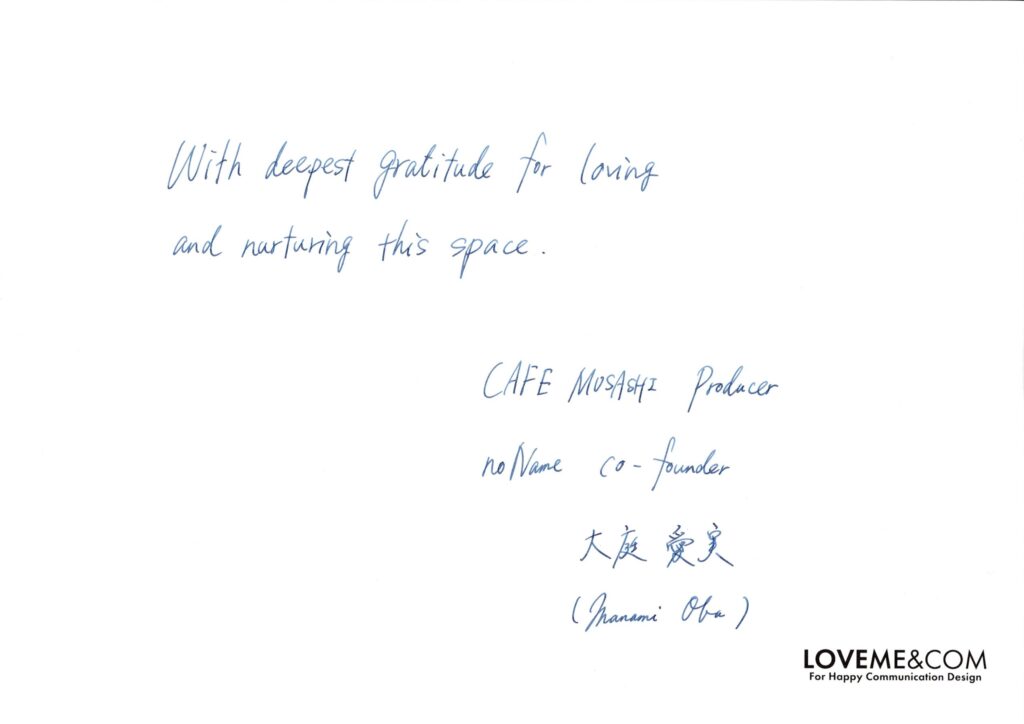 With deepest gratitude for loving
and nurturing this space.
CAFE MUSASHI Producer
noName co-founder
大庭 愛実
(Manami Oba)
LOVEME&COM
For Happy Communication Design